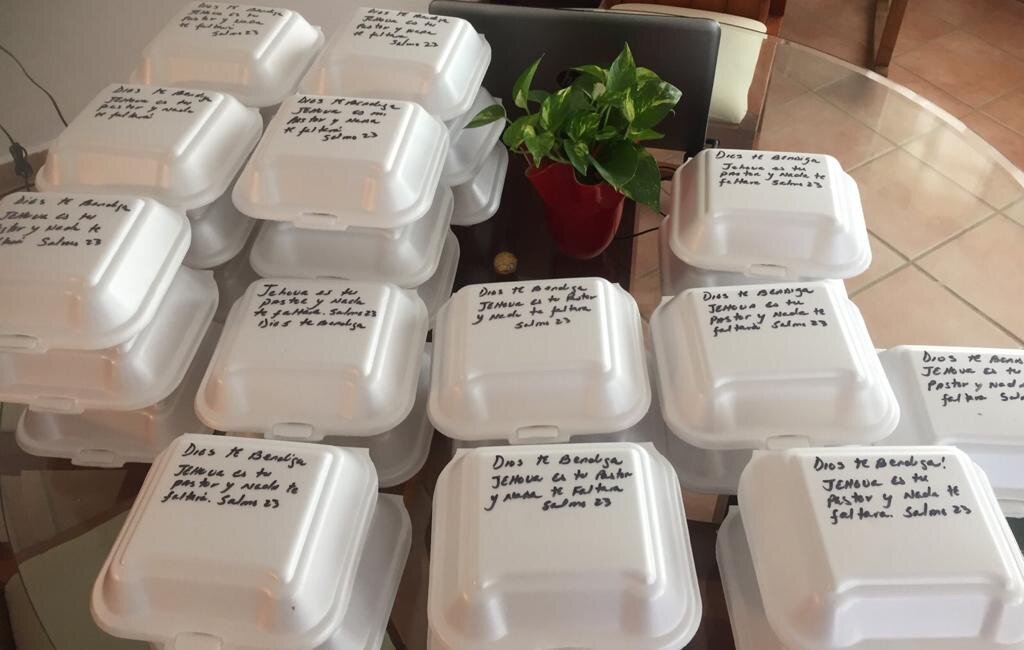 Dios te Bendiga
Jehova es tu
Pastor y Nada
te faltará
Salmo 23
Dios te Bendiga
JEHova es tu
Pastor y Nada
te faltara
Salmo 23
Dios te Bendiga
JEHova es tu
pastor y Nada
te faltará
Salmo 23
Dios te Bendiga
JEHova es mi
Pastor y Nana
te faltará
Salmo 23
Dios te Bendiga
Jehova es tu
Pastor y Nada te
faltará Salmo 23
Dios te Bendiga
Jehova es tu
Pastor y Nada te
faltara Salmo 23
Jehova es tu
Pastor y Nada
te faltara. Salmo 23
Dios te Bendiga
Dios te Bendiga
JEHova es tu Pastor
y Nada te faltara
Salmo 23
Dios te Bendiga
JEHova es tu
Pastor y Nada te
faltara Salmo 23
Dios te
JEHova es tu
Pastor y Nada
faltara
Dios te Bendiga
JEHova es tu
pastor y Nada te
faltará. Salmo 23
Dios te Bendiga
JEHova es tu Pastor
y Nana te Faltara
Salmo 23
Dios te Bendiga!
JEHova es tu
Pastor y Nada te
faltara. Salmo 23